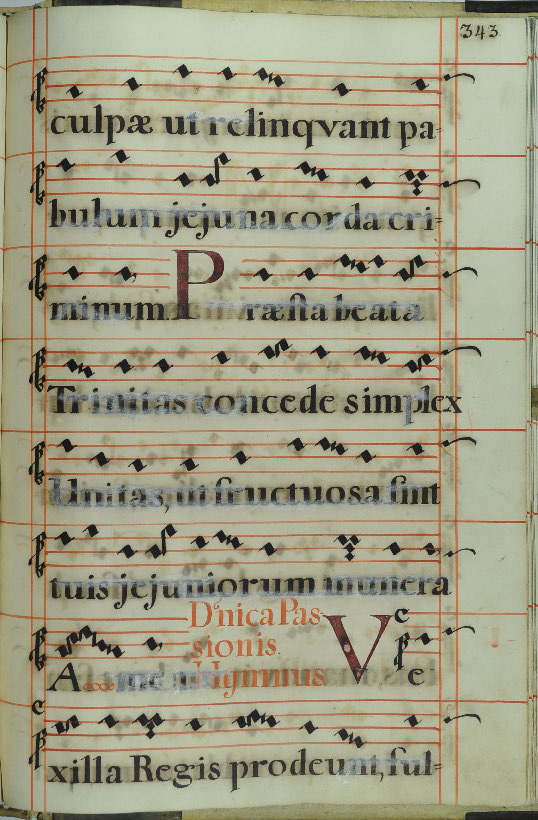 343
culpæ ut relinqvant pa-
bulum jejuna corda cri-
minum. Præsta beata
Trinitas concede simplex
Unitas, ut fructuosa sint
tuis jejuniorum munera
D'nica Pas-
sionis.
A....me n. Hymnus Ve
xilla Regis prodeunt, ful-